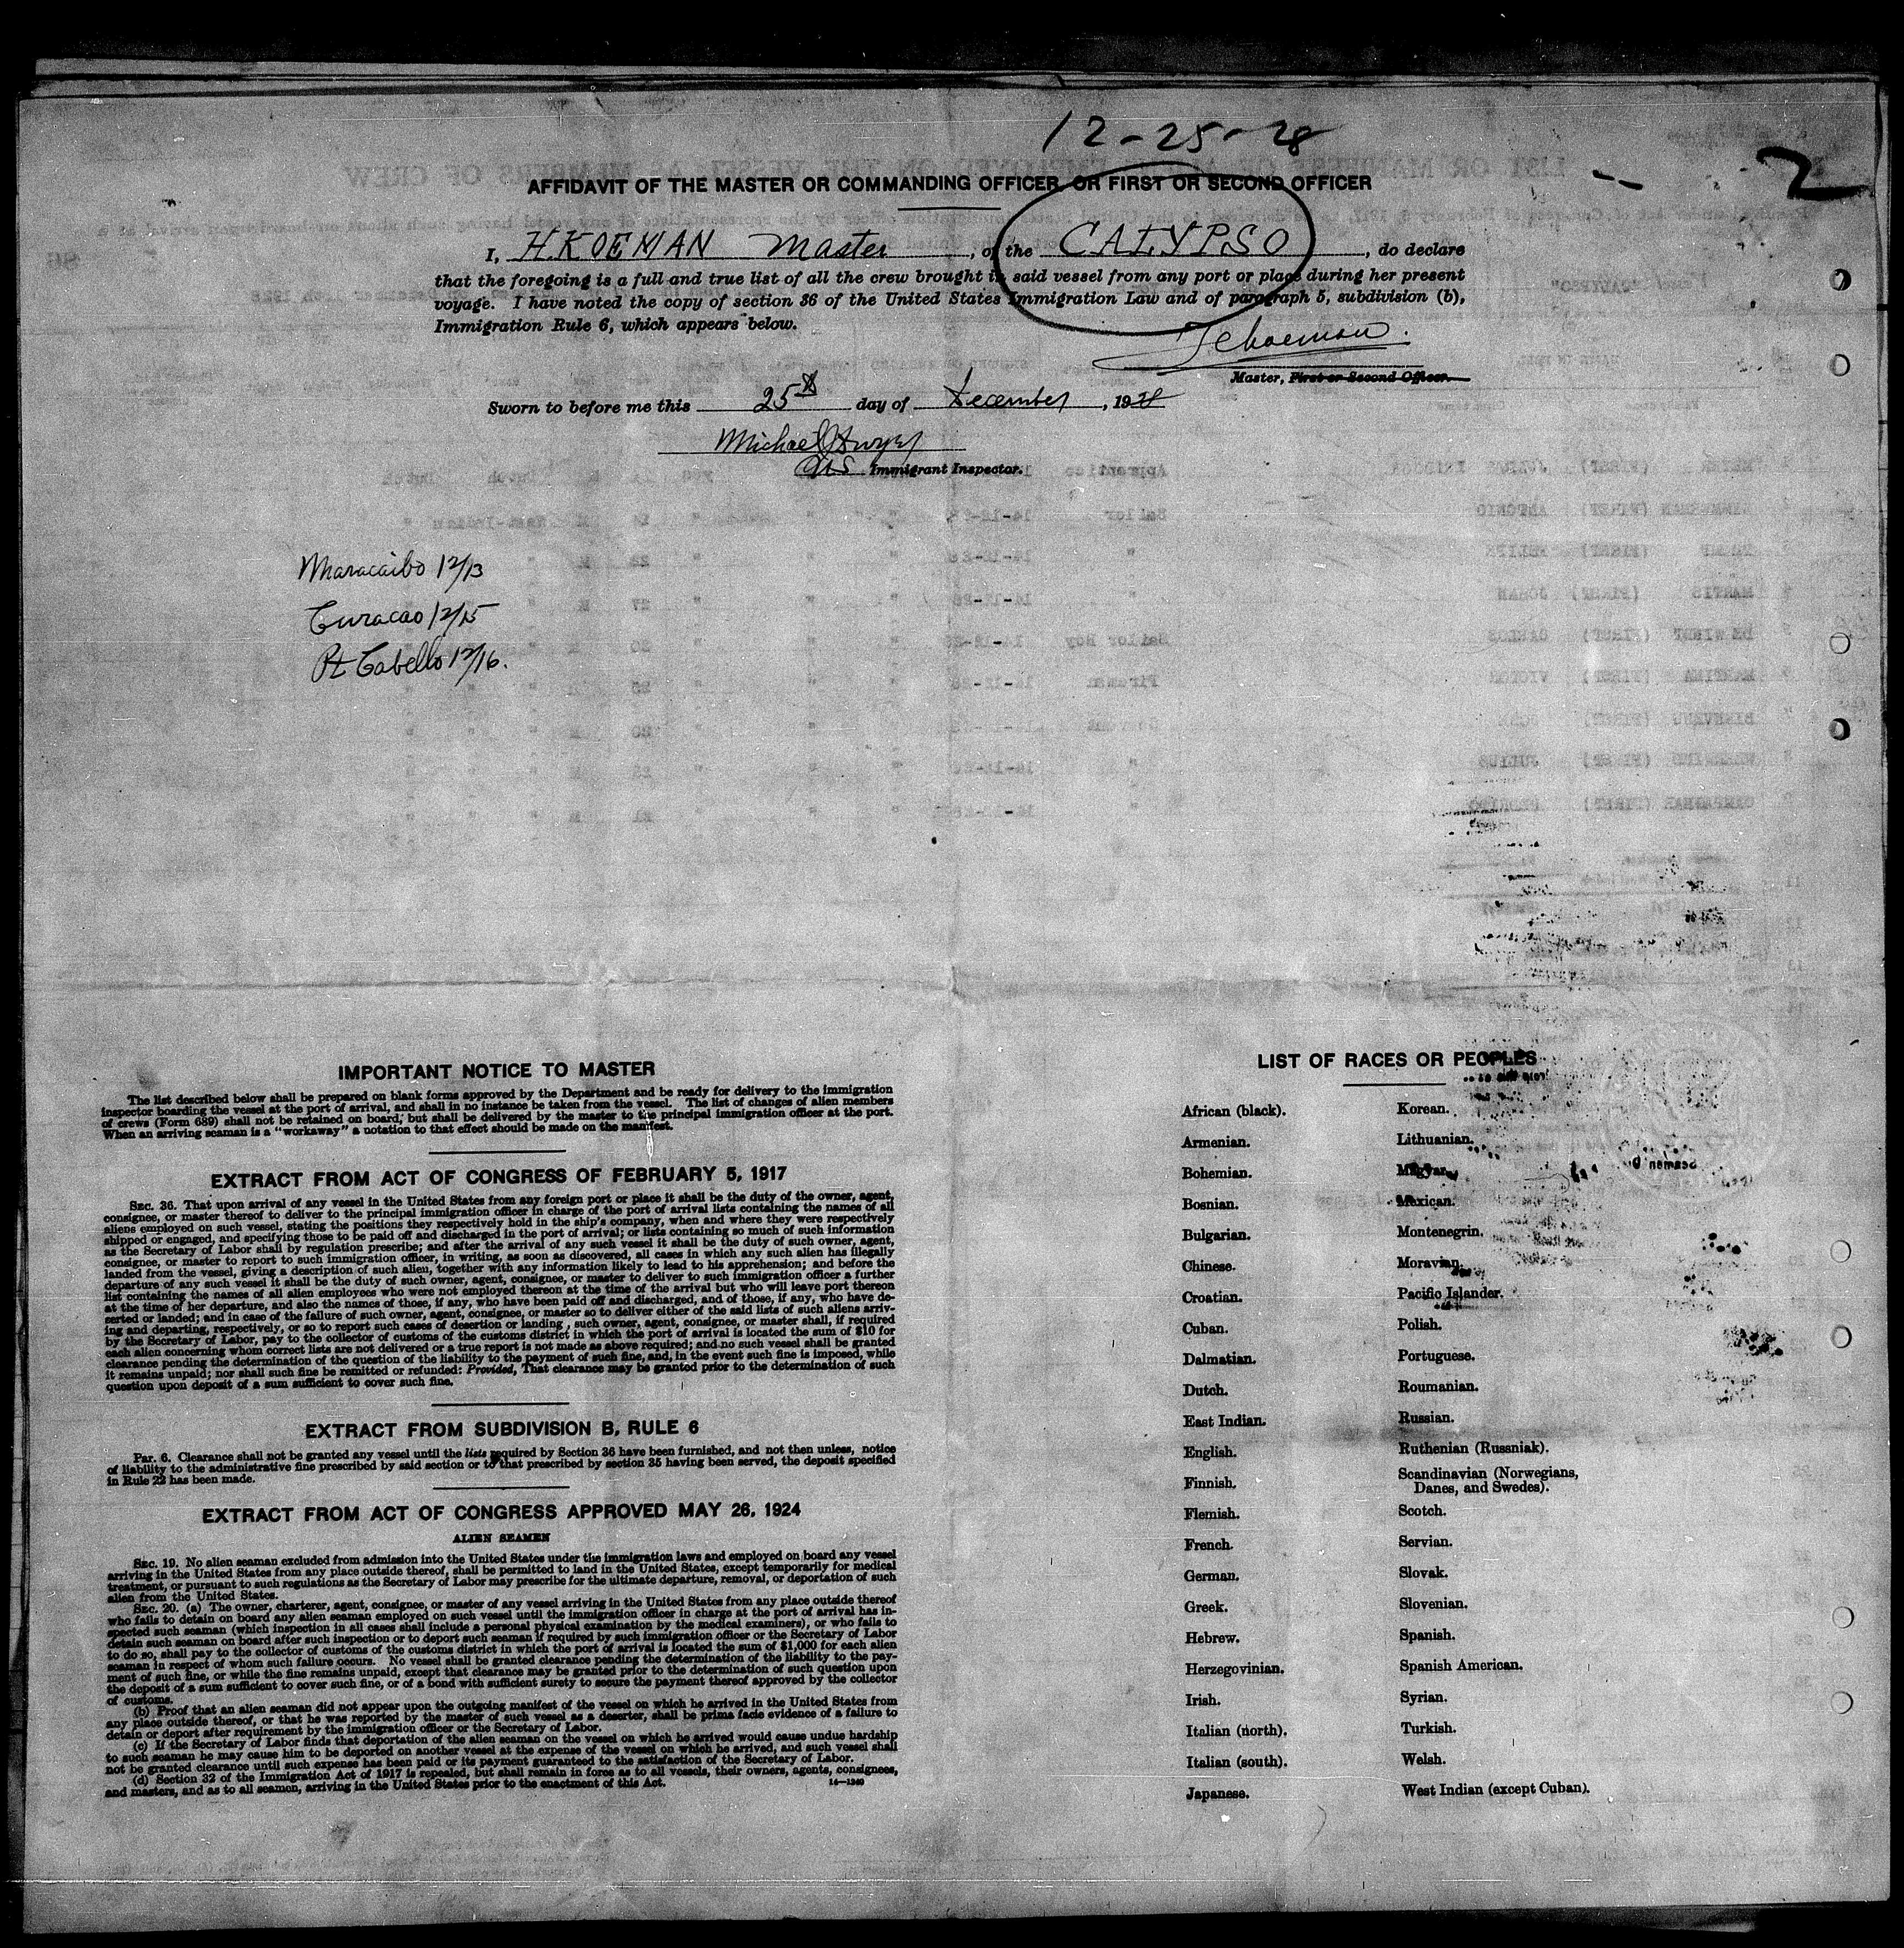 12-25-28
2
AFFIDAVIT OF THE MASTER OR COMMANDING OFFICER OR FIRST OR SECOND OFFICER
I, H.KOEMAN Master, of the CALYPSO, do declare
that the foregoing is a full and true list of all the crew brought in said vessel from any port or place during her present
voyage. I have noted the copy of section 36 of the United States Immigration Law and of paragraph 5, subdivision (b),
Immigration Rule 6, which appears below.
Master, First or Second Officer.
Sworn to before me this 25th day of December, 1928
Michael
US Immigrant Inspector.
Maracaibo 12/13
Curacao 12/15
Pt Cabello 12/16.
IMPORTANT NOTICE TO MASTER
The list described below shall be prepared on blank forms approved by the Department and be ready for delivery to the immigration
inspector boarding the vessel at the port of arrival, and shall in no instance be taken from the vessel. The list of changes of alien members
of crews (Form 689) shall not be retained on board, but shall be delivered by the master to the principal immigration officer at the port.
When an arriving seaman is a "workaway" a notation to that effect should be made on the manifest.
EXTRACT FROM ACT OF CONGRESS OF FEBRUARY 5, 1917
SEC. 36. That upon arrival of any vessel in the United States from any foreign port or place it shall be the duty of the owner, agent,
consignee, or master thereof to deliver to the principal immigration officer in charge of the port of arrival lists containing the names of all
aliens employed on such vessel, stating the positions they respectively hold in the ship's company, when and where they were respectively
shipped or engaged, and specifying those to be paid off and discharged in the port of arrival; or lists containing so much of such information
as the Secretary of Labor shall by regulation prescribe; and after the arrival of any such vessel it shall be the duty of such owner, agent,
consignee, or master to report to such immigration officer, in writing, as soon as discovered, all cases in which any such alien has illegally
landed from the vessel, giving a description of such alien, together with any information likely to lead to his apprehension; and before the
departure of any such vessel it shall be the duty of such owner, agent, consignee, or master to deliver to such immigration officer a further
list containing the names of all alien employees who were not employed thereon at the time of the arrival but who will leave port thereon
at the time of her departure, and also the names of those, if any, who have been paid off and discharged, and of those, if any, who have de-
serted or landed; and in case of the failure of such owner, agent, consignee, or master so to deliver either of the said lists of such aliens arriv-
ing and departing, respectively, or so to report such cases of desertion or landing, such owner, agent, consignee, or master shall, if required
by the Secretary of Labor, pay to the collector of customs of the customs district in which the port of arrival is located the sum of $10 for
each alien concerning whom correct lists are not delivered or a true report is not made as above required; and no such vessel shall be granted
clearance pending the determination of the question of the liability to the payment of such fine, and, in the event such fine is imposed, while
it remains unpaid; nor shall such fine be remitted or refunded: Provided, That clearance may be granted prior to the determination of such
question upon deposit of a sum sufficient to cover such fine.
EXTRACT FROM SUBDIVISION B, RULE 6
PAR. 6. Clearance shall not be granted any vessel until the lists required by Section 36 have been furnished, and not then unless, notice
of liability to the administrative fine prescribed by said section or to that prescribed by section 35 having been served, the deposit specified
in Rule 22 has been made.
EXTRACT FROM ACT OF CONGRESS APPROVED MAY 26, 1924
ALIEN SEAMEN
SEC. 19. No alien seaman excluded from admission into the United States under the immigration laws and employed on board any vessel
arriving in the United States from any place outside thereof, shall be permitted to land in the United States, except temporarily for medical
treatment, or pursuant to such regulations as the Secretary of Labor may prescribe for the ultimate departure, removal, or deportation of such
alien from the United States.
SEC. 20. (a) The owner, charterer, agent, consignee, or master of any vessel arriving in the United States from any place outside thereof
who fails to detain on board any alien seaman employed on such vessel until the immigration officer in charge at the port of arrival has in-
spected such seaman (which inspection in all cases shall include a personal physical examination by the medical examiners), or who fails to
detain such seaman on board after such inspection or to deport such seaman if required by such immigration officer or the Secretary of Labor
to do so, shall pay to the collector of customs of the customs district in which the port of arrival is located the sum of $1,000 for each alien
seaman in respect of whom such failure occurs. No vessel shall be granted clearance pending the determination of the liability to the pay-
ment of such fine, or while the fine remains unpaid, except that clearance may be granted prior to the determination of such question upon
the deposit of a sum sufficient to cover such fine, or of a bond with sufficient surety to secure the payment thereof approved by the collector
of customs.
(b) Proof that an alien seaman did not appear upon the outgoing manifest of the vessel on which he arrived in the United States from
any place outside thereof, or that he was reported by the master of such vessel as a deserter, shall be prima facie evidence of a failure to
detain or deport after requirement by the immigration officer or the Secretary of Labor.
(c) If the Secretary of Labor finds that deportation of the alien seaman on the vessel on which he arrived would cause undue hardship
to such seaman he may cause him to be deported on another vessel at the expense of the vessel on which he arrived, and such vessel shall
not be granted clearance until such expense has been paid or its payment guaranteed to the satisfaction of the Secretary of Labor.
(d) Section 32 of the Immigration Act of 1917 is repealed, but shall remain in force as to all vessels, their owners, agents, consignees,
and masters, and as to all seamen, arriving in the United States prior to the enactment of this Act. 14—1240
LIST OF RACES OR PEOPLES
African (black).
Armenian.
Bohemian.
Bosnian.
Bulgarian.
Chinese.
Croatian.
Cuban.
Dalmatian.
Dutch.
East Indian.
English.
Finnish.
Flemish.
French.
German.
Greek.
Hebrew.
Herzegovinian.
Irish.
Italian (north).
Italian (south).
Japanese.
Korean.
Lithuanian.
Magyar.
Mexican.
Montenegrin.
Moravian.
Pacific Islander.
Polish.
Portuguese.
Roumanian.
Russian.
Ruthenian (Russniak).
Scandinavian (Norwegians,
Danes, and Swedes).
Scotch.
Servian.
Slovak.
Slovenian.
Spanish.
Spanish American.
Syrian.
Turkish.
Welsh.
West Indian (except Cuban).